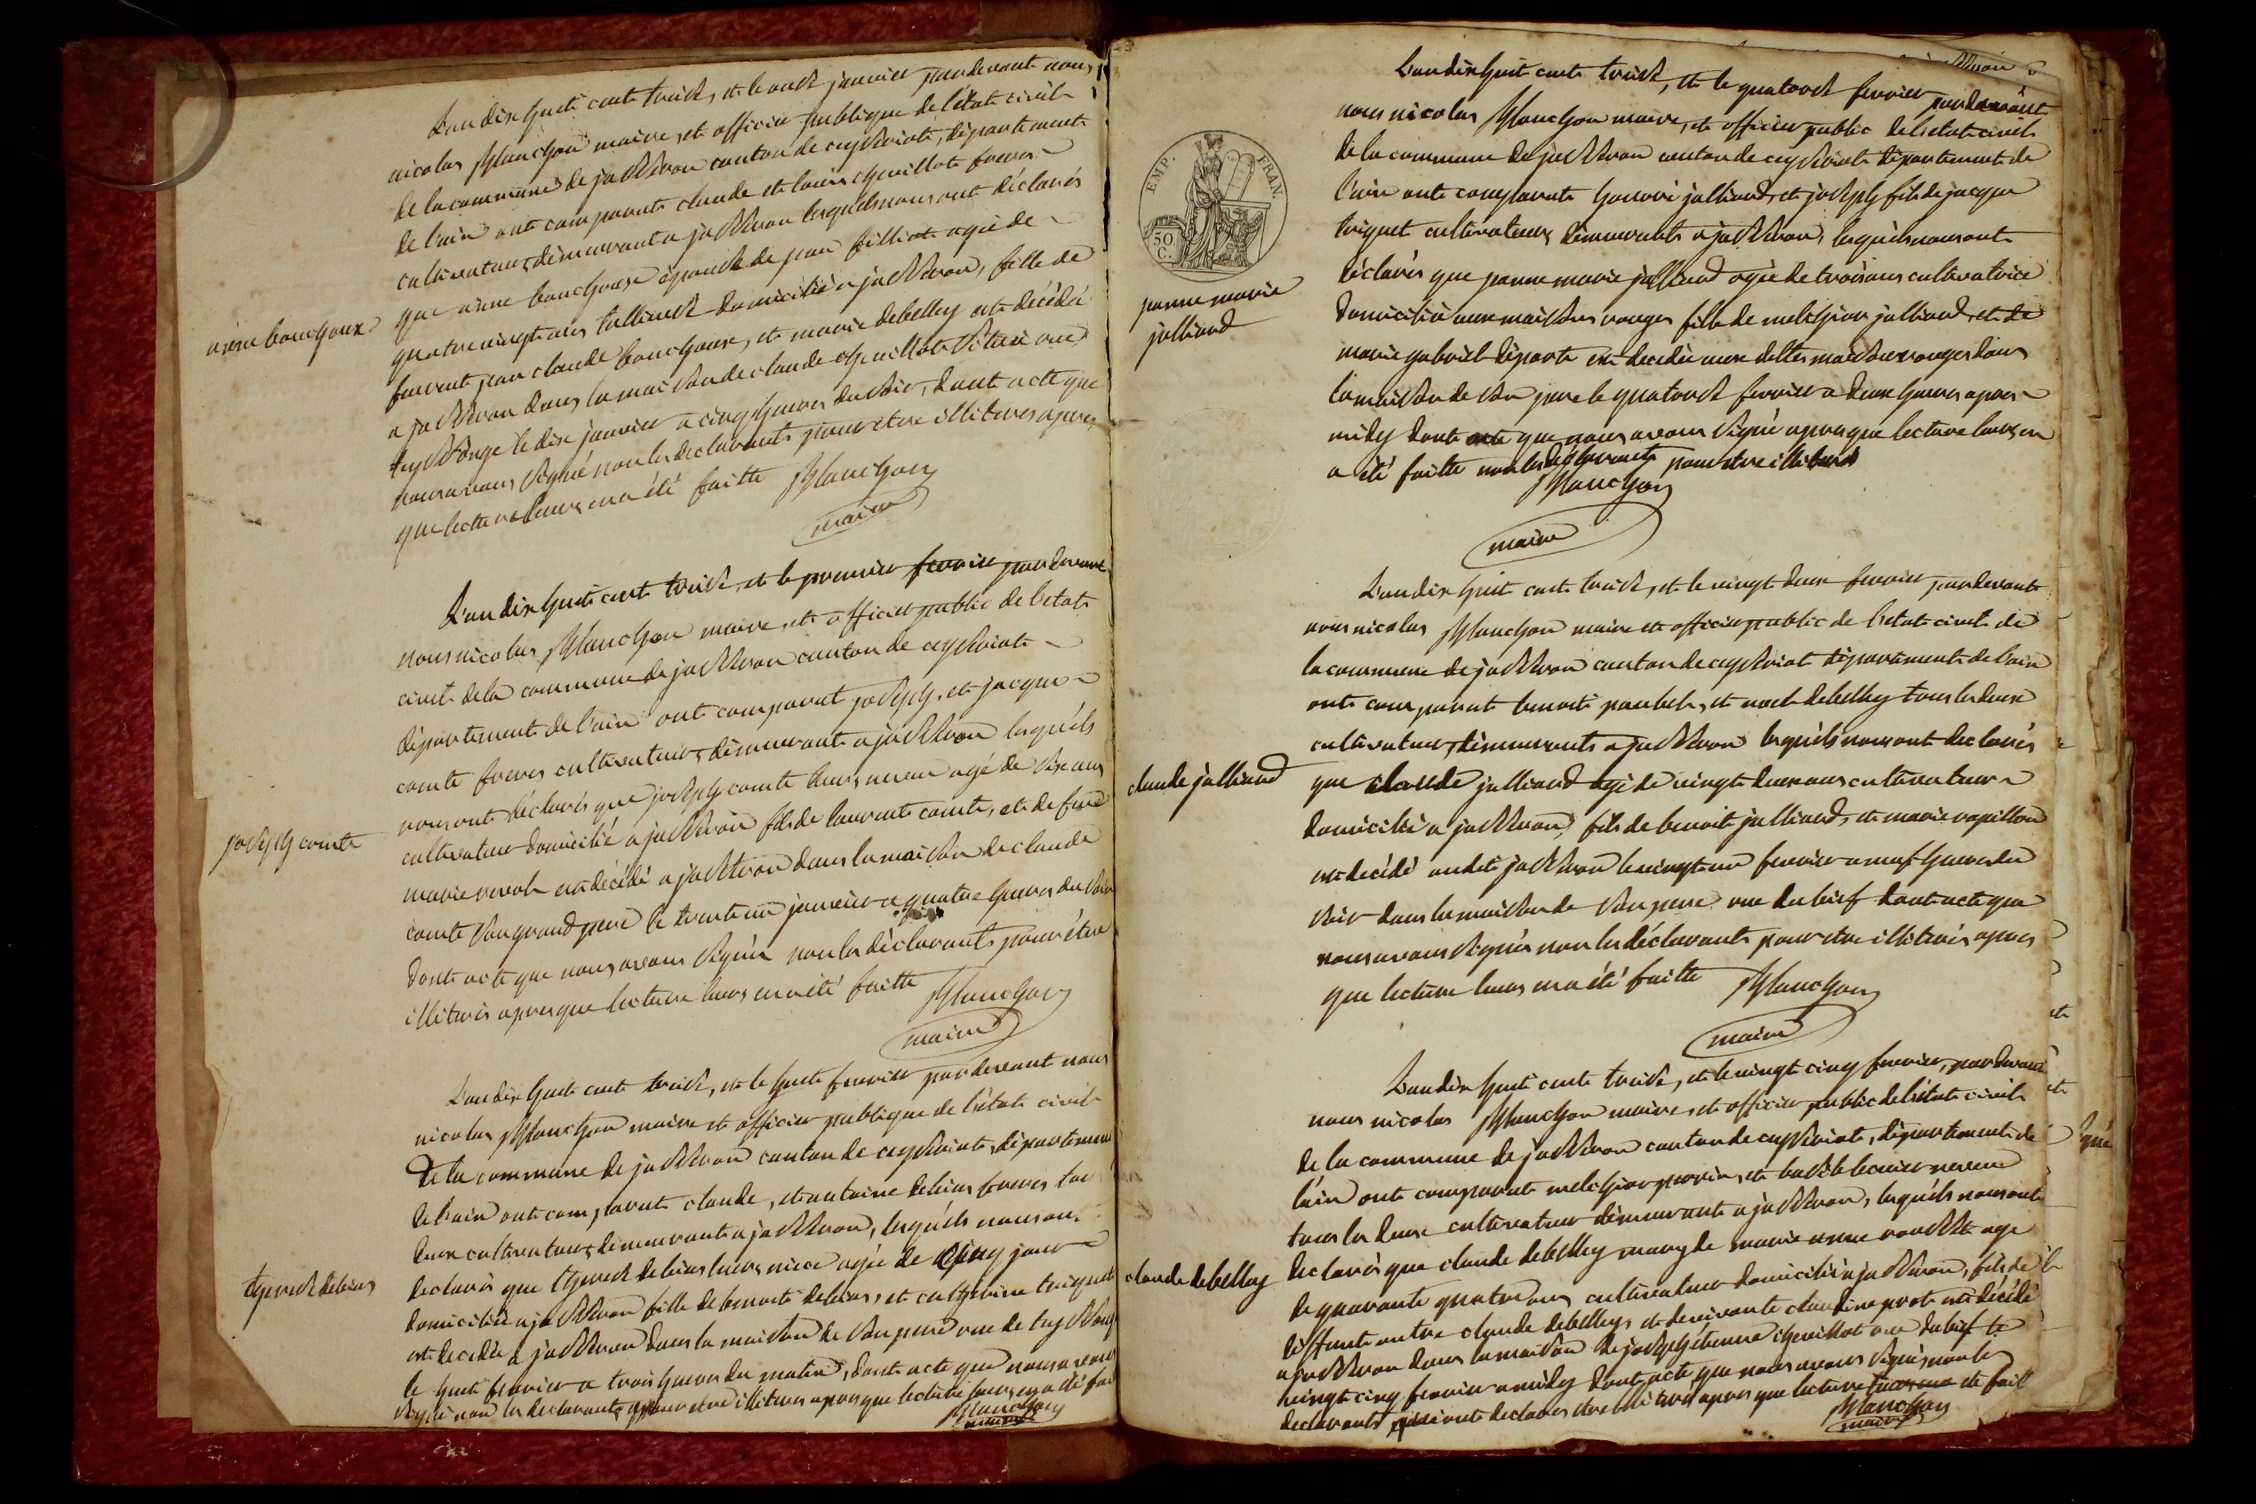 L'an dix huit cent treize, et le onze janvier pardevant nous
nicolas planchon maire, et officier publique de l'état civil
de la commune de jasseron canton de ceyseriat, département
de l'ain ont comparut claude et louis chevillot freres
cultivateurs demeurant a jasseron lesquels nous ont déclarés
que anne bouchoux épouse de jean filliat agée de
quatre vingt ans domicilié a jasseron, fille de
furent jean claude bouchoux, et marie debelley est décédé
a jasseron dans la maison de claude chevillot située rue
le dix janvier a cinq heures du soir, dont acte que
nous avons signé non les declarants pour etre illiteres apres
que lecture leurs en a été faitte planchon
maire
anne bouchoux
L'an dix huit cent treize, et le premier fevrier pardevant
nous nicolas planchon maire, et officier public de l'etat
civil de la commune de jasseron canton de ceyseriat
département de l'ain ont comparut joseph, et jacque
comte freres cultivateurs demeurant a jasseron lesquels
nous ont déclarés que joseph comte leurs neveu agé de six ans
cultivateur domicilié a jasseron fils de laurent comte, et de fue
marie est décédé a jasseron dans la maison de claude
comte son grand pere le trente un janvier a quatre heures du soir
dont acte que nous avons signés non les déclarants pour être
illiterés apres que lecture leurs en a été faitte planchon
maire
joseph comte
L'an dix huit cent treize, et le huit fevrier pardevant nous
nicolas planchon maire et officier publique de l'état civil
de la commune de jasseron canton de ceyseriat, département
de l'ain ont comparut claude, et antoine debias freres
deux cultivateurs demeurant a jasseron, lesquels nous ont
declarés que therese debias leurs niece agée de cinq jour
domiciliée a jasseron fille de benoit debias, et catherine triquet
est decédée a jasseron dans la maison de son pere rue de
le huit fevrier a trois heures du matin, dont acte que nous avons
signé non les declarants pour etre illiteres apres que lecture leurs en a été fai
planchon
maire
therese debias
L'an dix huit cent treize, et le quatorze fevrier pardevant
nous nicolas planchon maire, et officier public de l'etat civil
de la commune de jasseron canton de ceyseriat département de
l'ain ont comparut honoré julliard, et joseph fils de jacque
triquet cultivateurs demeurants a jasseron, lesquels nous ont
déclarés que jeanne marie julliard agée de trois ans cultivatrice
domicilié aux maisons rouges fille de melchior julliard, et de
marie gabriel est decedée aux dittes maisons rouges dans
la maison de son pere le quatorze fevrier a deux heures apres
midy dont acte que nous avons signé apres que lecture leurs en
a été faitte non les declarants pour etre illiterés
planchon
maire
EMP. FRAN.
50 C.
jeanne marie
julliard
L'an dix huit cent treize, et le vingt deux fevrier, pardevant
nous nicolas planchon maire et officier public de l'etat civil de
la commune de jasseron canton de ceyseriat département de l'ain
ont comparut benoit et noel debelley tous les deux
cultivateurs, demeurants a jasseron lesquels nous ont declarés
que claude julliard agé de vingt deux ans cultivateur
domicilié a jasseron, fils de benoit julliard, et marie rapillon
est decédé audit jasseron le vingt un fevrier a neuf heures du
soir dans la maison de son pere rue du bief dont acte que
nous avons signés non les déclarants pour etre illiterés apres
que lecture leurs en a été faitte planchon
maire
claude julliard
L'an dix huit cent treize, et le vingt cinq fevrier, pardevant
nous nicolas planchon maire, et officier public de l'état civil
de la commune de jasseron canton de ceyseriat, département de
l'ain ont comparut melchior perrin, et neveu
tous les deux cultivateur demeurant a jasseron, lesquels nous ont
declarés que claude debelley mary de marie anne age
de quarante quatre ans cultivateur domicilié a jasseron, fils de
deffunt autre claude debelley, et de vivante claudine prost est décédé
a jasseron dans la maison de joseph étienne chevillot rue du bief le
vingt cinq fevrier a midy dont acte que nous avons signés non les
declarants qui ont declarés etre illiteres apres que lecture leurs en a eté fait
planchon
maire
claude debelley